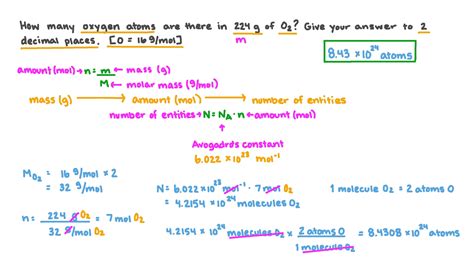 How many oxygen atoms are there in 224 g of O₂? Give your answer to 2
decimal places. [O = 16 g/mol]
m
8.43 × 10²⁴ atoms
amount (mol) → n = m ← mass (g)
M ← molar mass (g/mol)
mass (g) → amount (mol) → number of entities
number of entities → N = N_A · n ← amount (mol)
↑
Avogadro's constant
6.022 × 10²³ mol⁻¹
M_O₂ = 16 g/mol × 2
= 32 g/mol
n = 224 g O₂ = 7 mol O₂
32 g/mol O₂
N = 6.022 × 10²³ mol⁻¹ · 7 mol O₂
= 4.2154 × 10²⁴ molecules O₂
1 molecule O₂ = 2 atoms O
4.2154 × 10²⁴ molecules O₂ × 2 atoms O = 8.4308 × 10²⁴ atoms
1 molecule O₂